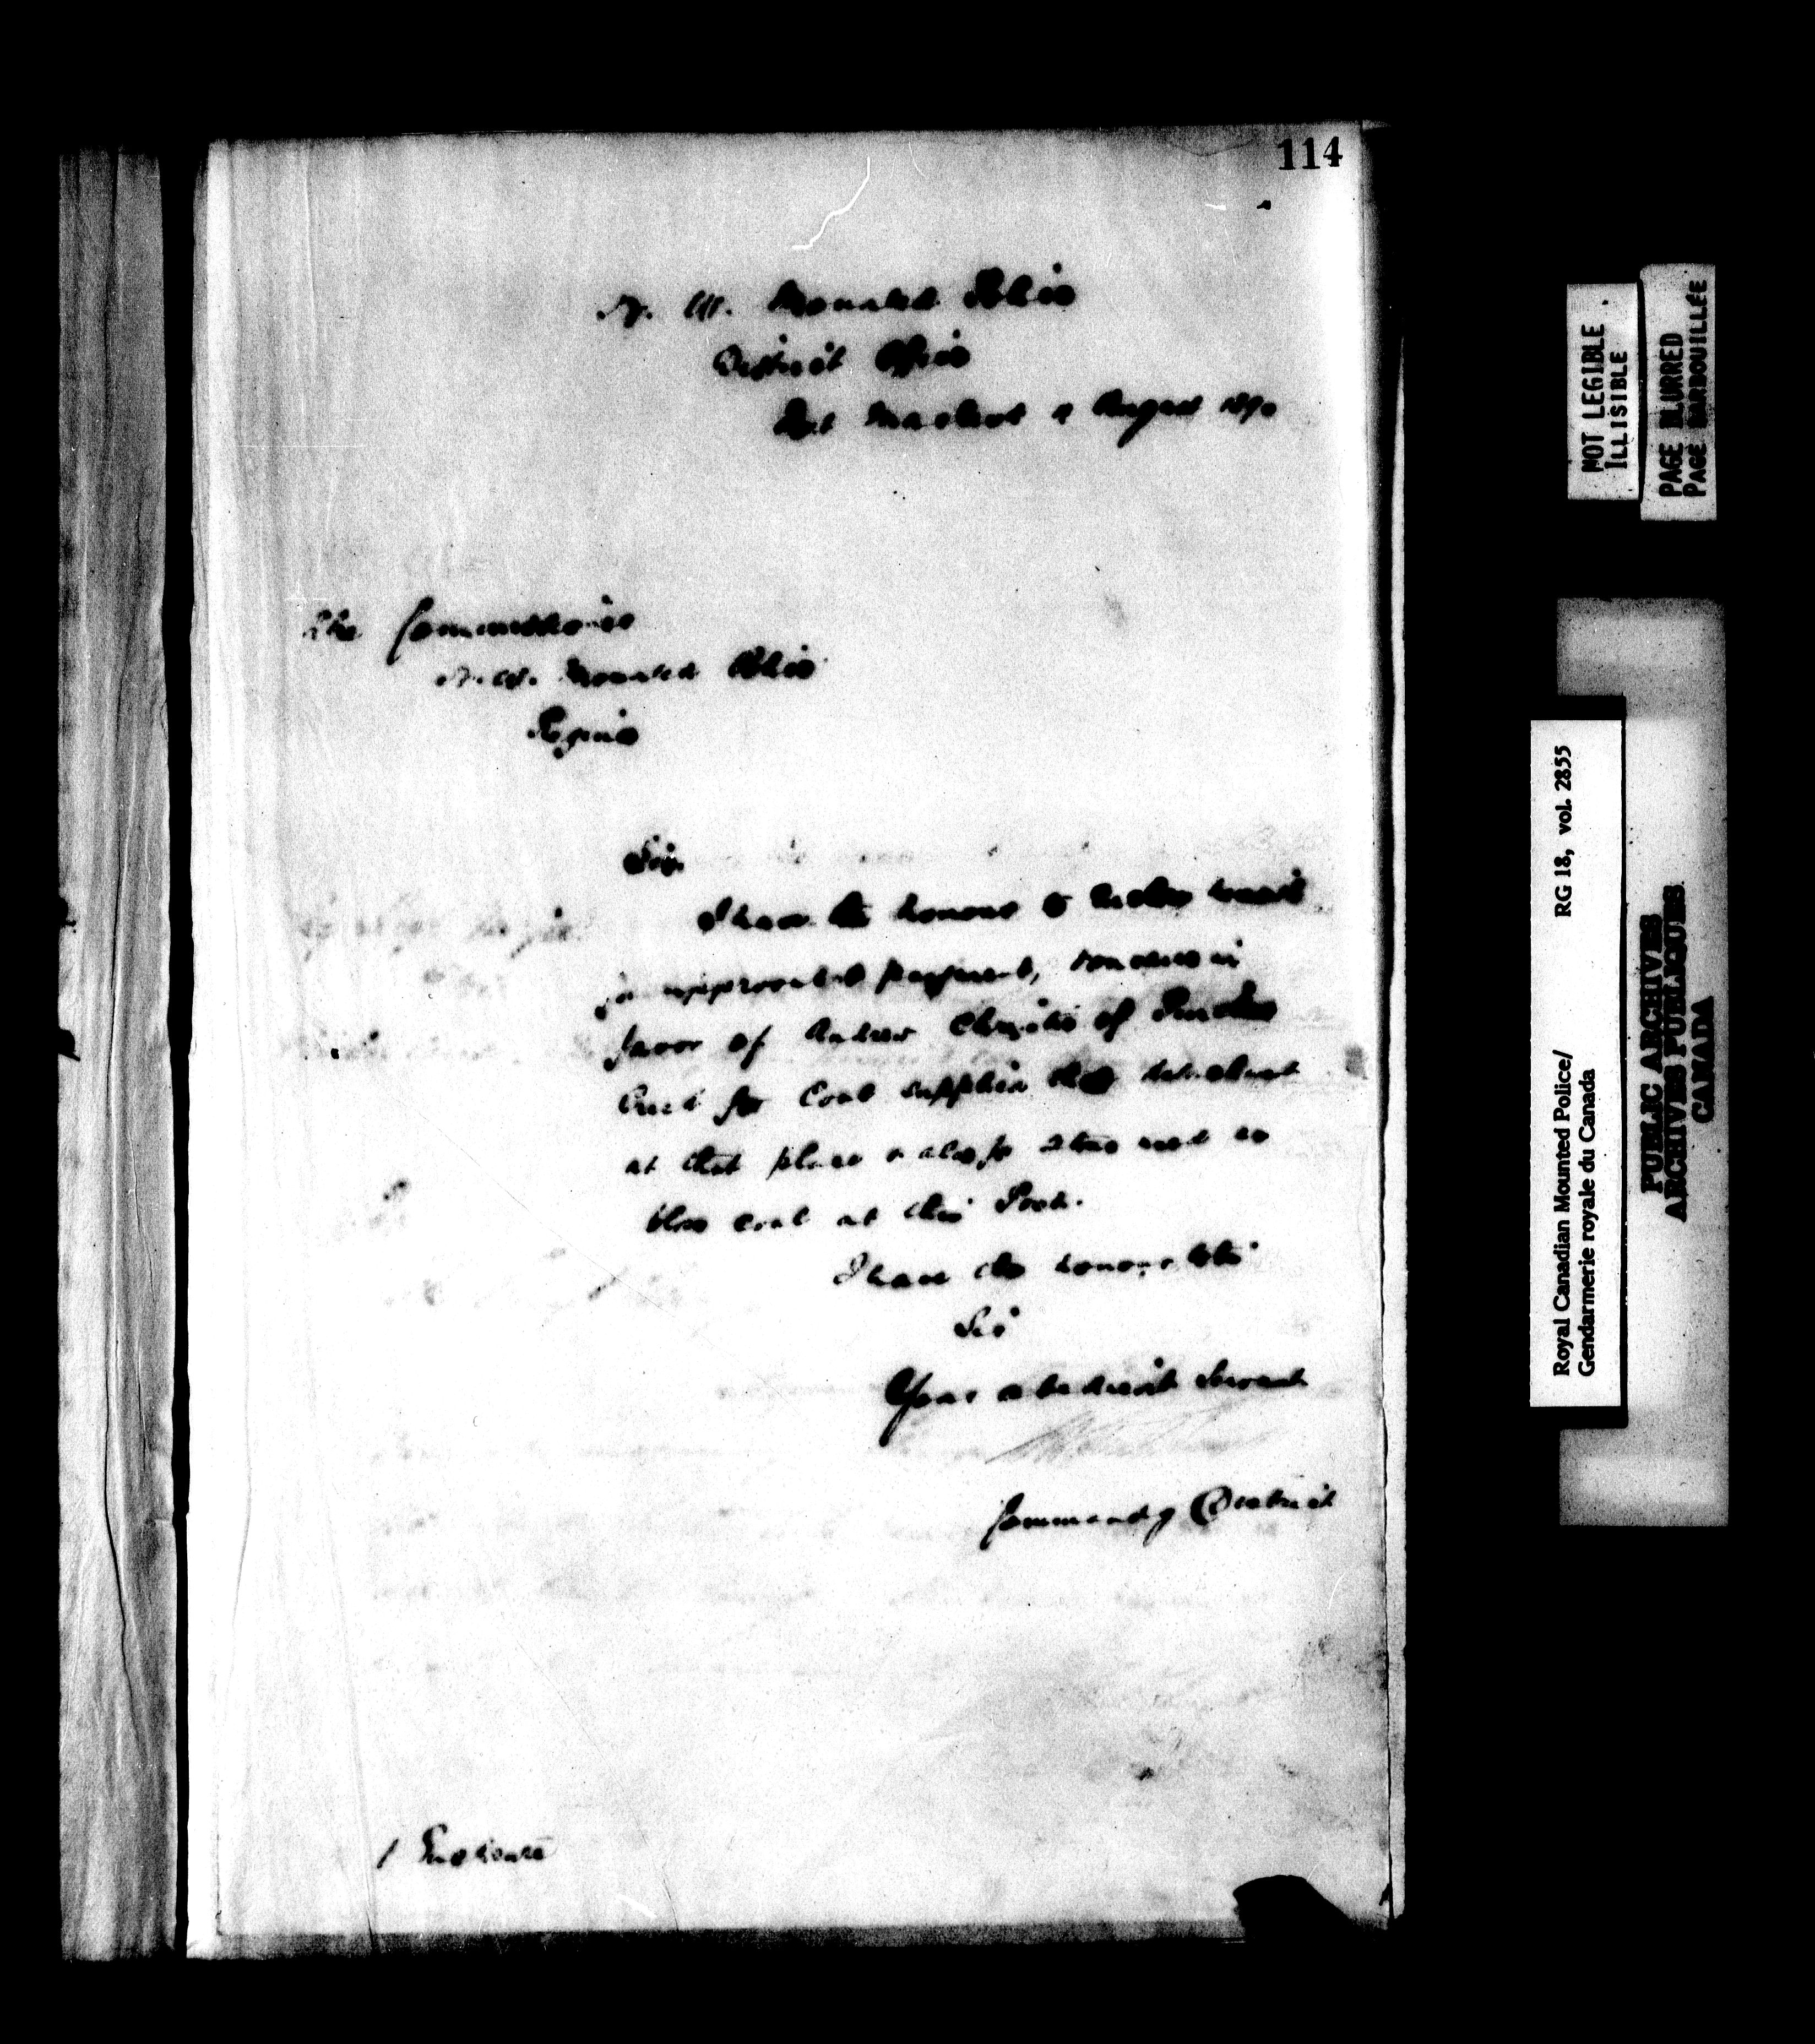 114
N. W. Mounted Police
District Office
Fort Macleod August 1890
The Commissioner
N. W. Mounted Police
Regina
Sir,
I have the honour to enclose
for approval & payment, vouchers in
favor of Andrew Christie of Pincher
Creek for Coal supplied the detachment
at that place & also for
coal at this Post.
I have the honour to be
Sir
Your obedient Servant
Commandg District
1 Enclosure
NOT LEGIBLE
ILLISIBLE
PAGE BLURRED
PAGE BARBOUILLÉE
Royal Canadian Mounted Police/
Gendarmerie royale du Canada
RG 18, vol. 2855
PUBLIC ARCHIVES
ARCHIVES PUBLIQUES
CANADA